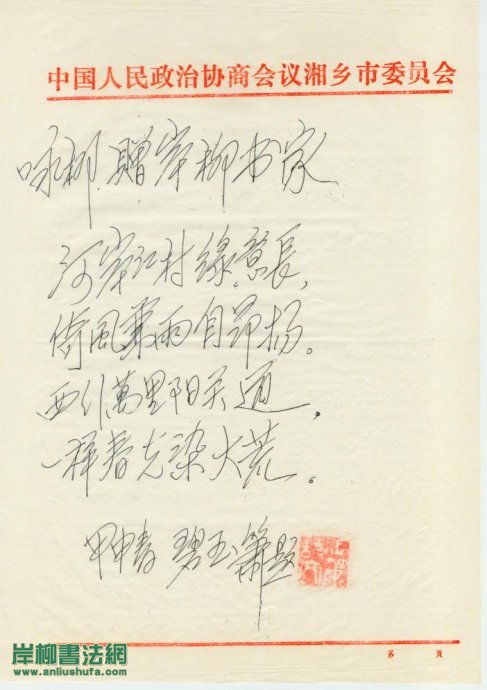 中国人民政治协商会议湘乡市委员会
咏柳 赠岸柳书家
河岸江村绿意长,
倚风乘雨自昂扬。
西行萬里阳关道,
一样春光染大荒。
甲申春 碧玉箫题
第 页
岸柳書法網
www.anliushufa.com